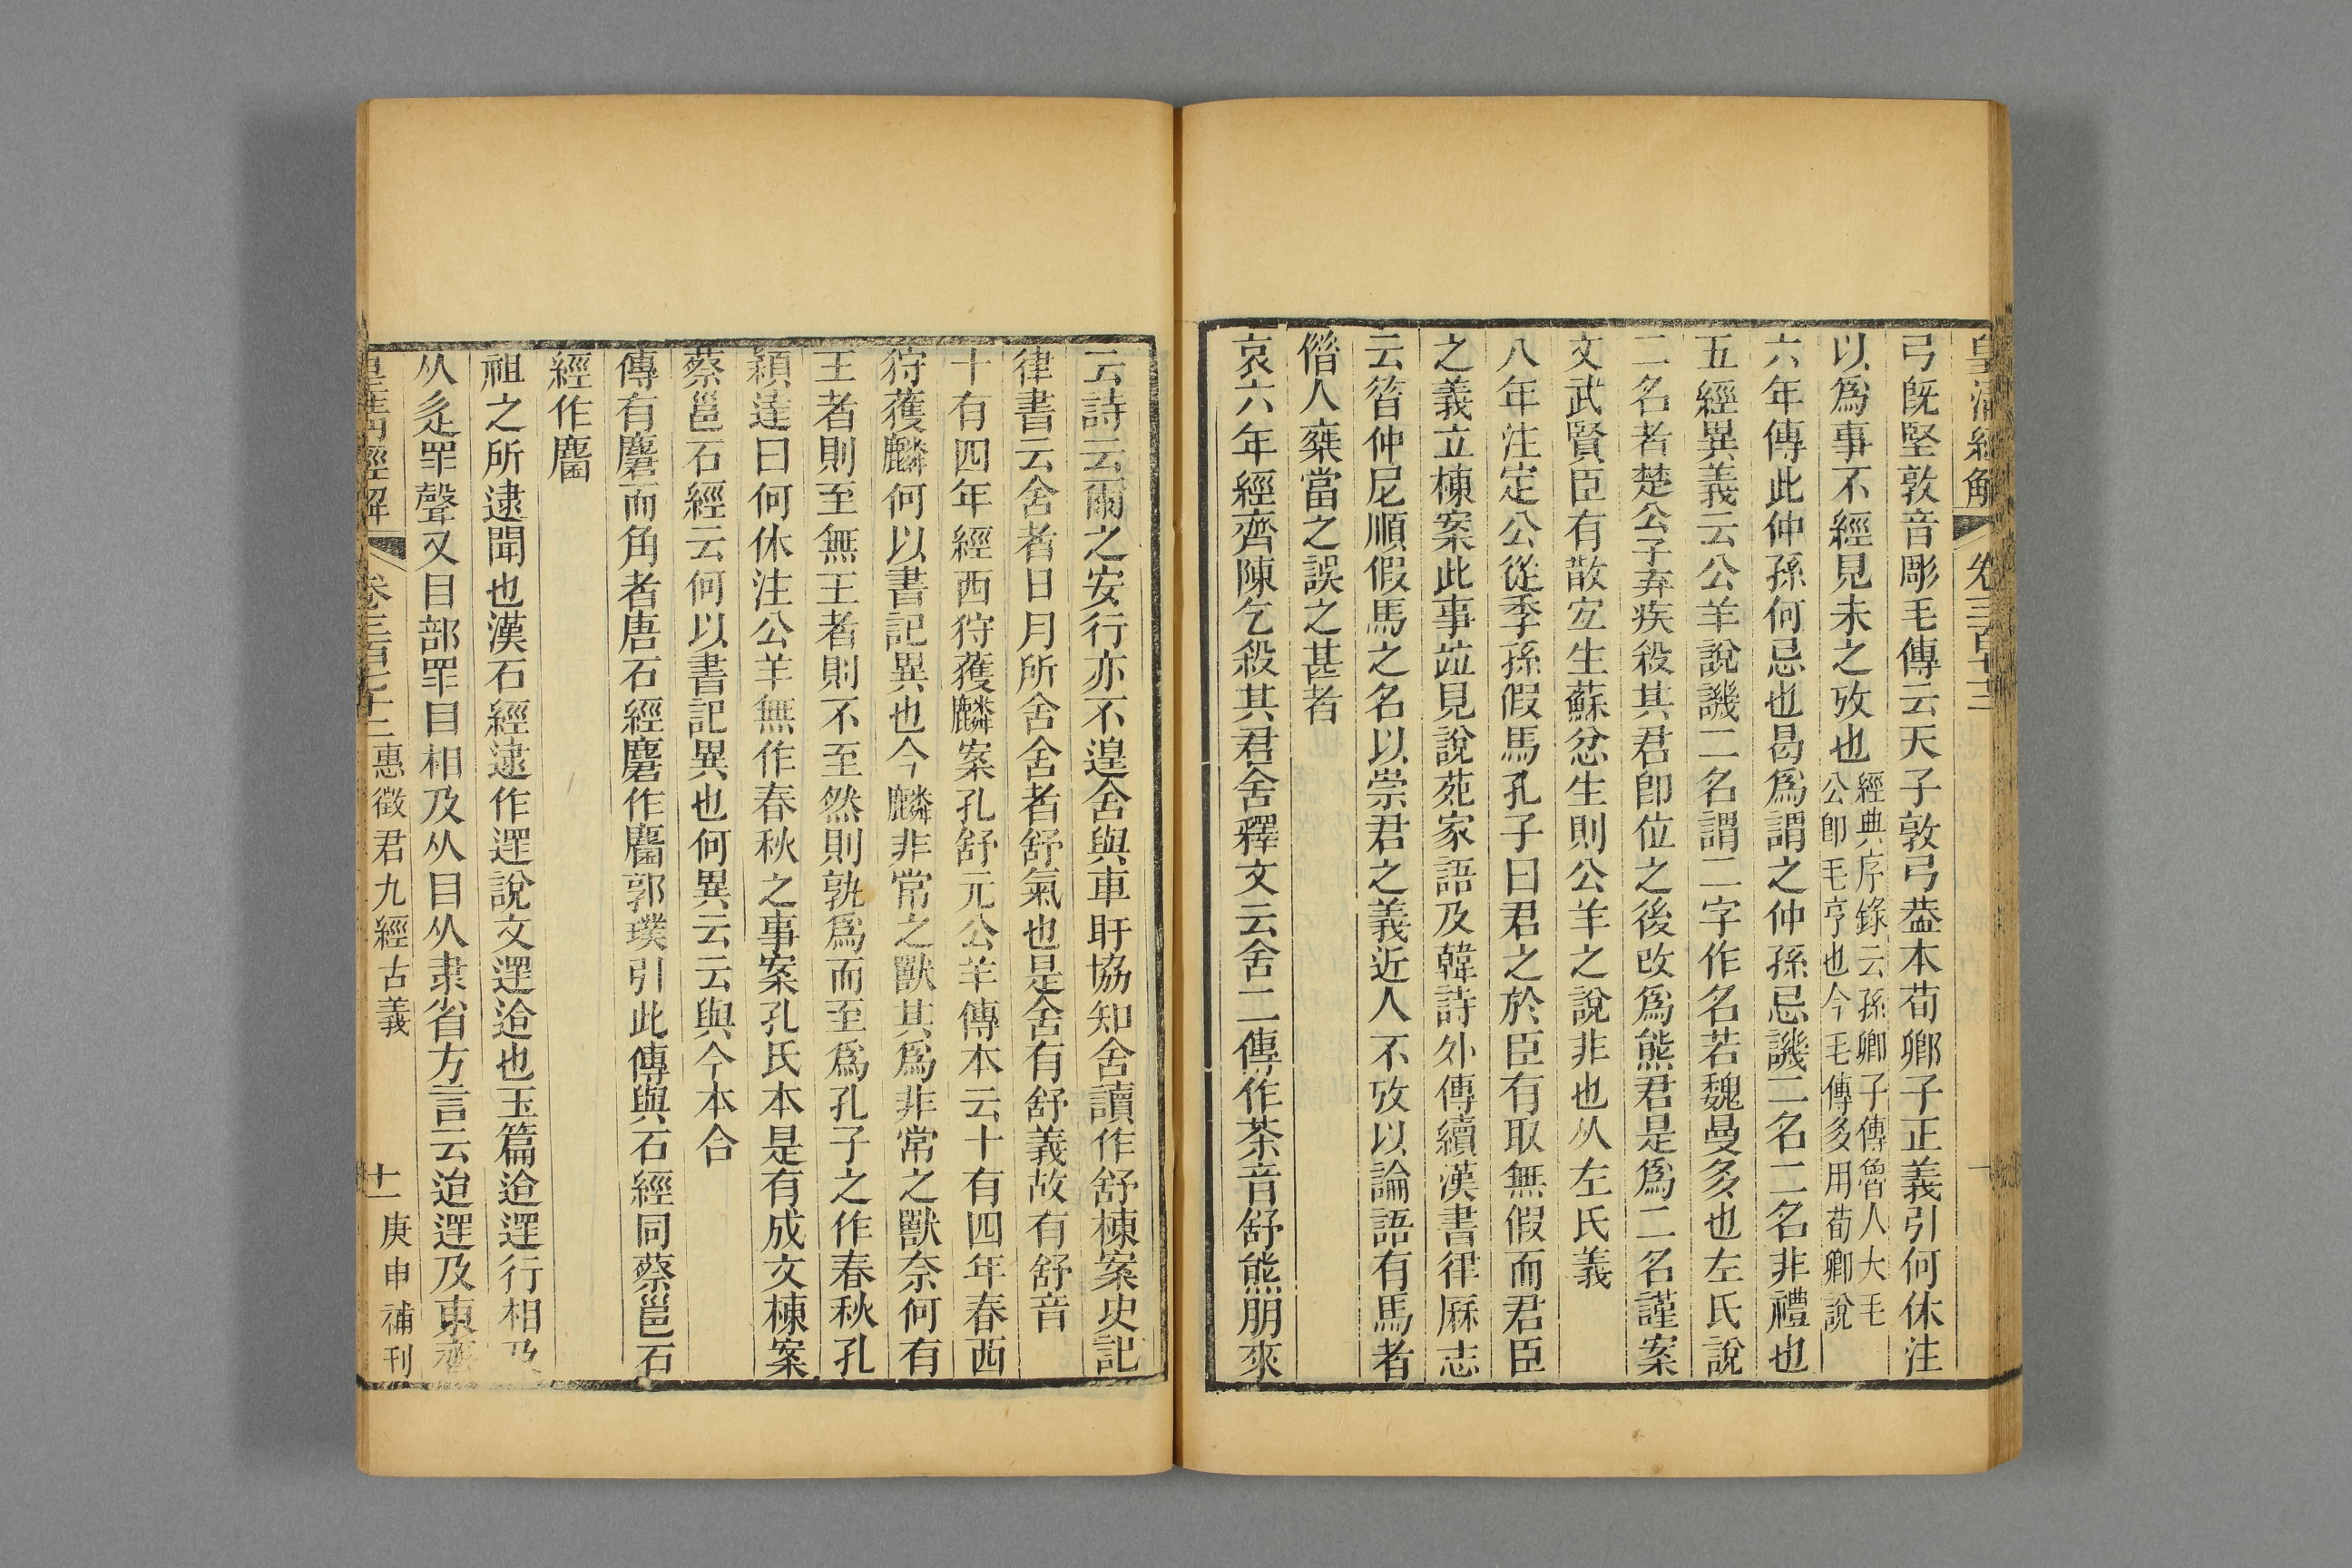 皇清經解 卷三百七十三
弓旣堅敦音彫毛傳云天子敦弓葢本荀卿子正義引何休注
以爲事不經見未之攷也經典序錄云孫卿子傳魯人大毛公卽毛亨也今毛傳多用荀卿說
六年傳此仲孫何忌也曷爲謂之仲孫忌譏二名二名非禮也
五經異義云公羊說譏二名謂二字作名若魏曼多也左氏說
二名者楚公子弃疾殺其君卽位之後改爲熊君是爲二名謹案
文武賢臣有散宐生蘇忿生則公羊之說非也从左氏義
八年注定公從季孫假馬孔子曰君之於臣有取無假而君臣
之義立棟案此事竝見說苑家語及韓詩外傳續漢書律厤志
云昝仲尼順假馬之名以崇君之義近人不攷以論語有馬者
偺人椉當之誤之甚者
哀六年經齊陳乞殺其君舍釋文云舍二傳作荼音舒熊朋來
云詩云爾之安行亦不遑舍與車盱協知舍讀作舒棟案史記
律書云舍者日月所舍舍者舒氣也是舍有舒義故有舒音
十有四年經西狩獲麟案孔舒元公羊傳本云十有四年春西
狩獲麟何以書記異也今麟非常之獸其爲非常之獸奈何有
王者則至無王者則不至然則孰爲而至爲孔子之作春秋孔
穎達曰何休注公羊無作春秋之事案孔氏本是有成文棟案
蔡邕石經云何以書記異也何異云云與今本合
傳有麏而角者唐石經麏作麕郭璞引此傳與石經同蔡邕石
經作麕
祖之所逮聞也漢石經逮作遝說文遝迨也玉篇迨遝行相及
从辵眔聲又目部眔目相及从目从隶省方言云迨遝及東齊
皇淸經解 卷三百七十三 惠徵君九經古義 十一 庚申補刊